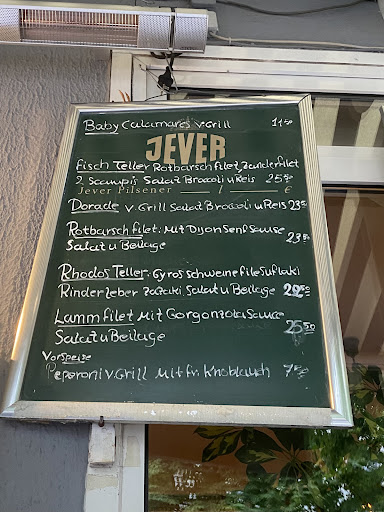 Baby Calamares v. Grill 11 50
JEVER
Fisch Teller Rotbarschfilet, Zanderfilet
2 Scampis Salat Broccoli u Reis 25 90
Jever Pilsener l €
Dorade v. Grill Salat Broccoli u Reis 23 50
Rotbarschfilet: Mit Dijon Senf Sauce
Salat u Beilage 23 50
Rhodos Teller: Gyros Schweinefile Suflaki
Rinderleber Zazaki, Salat u Beilage
Lammfilet Mit Gorgonzola Sauce
Salat u Beilage 25 50
Vorspeise
Peperoni v. Grill Mit fr. Knoblauch 7 50